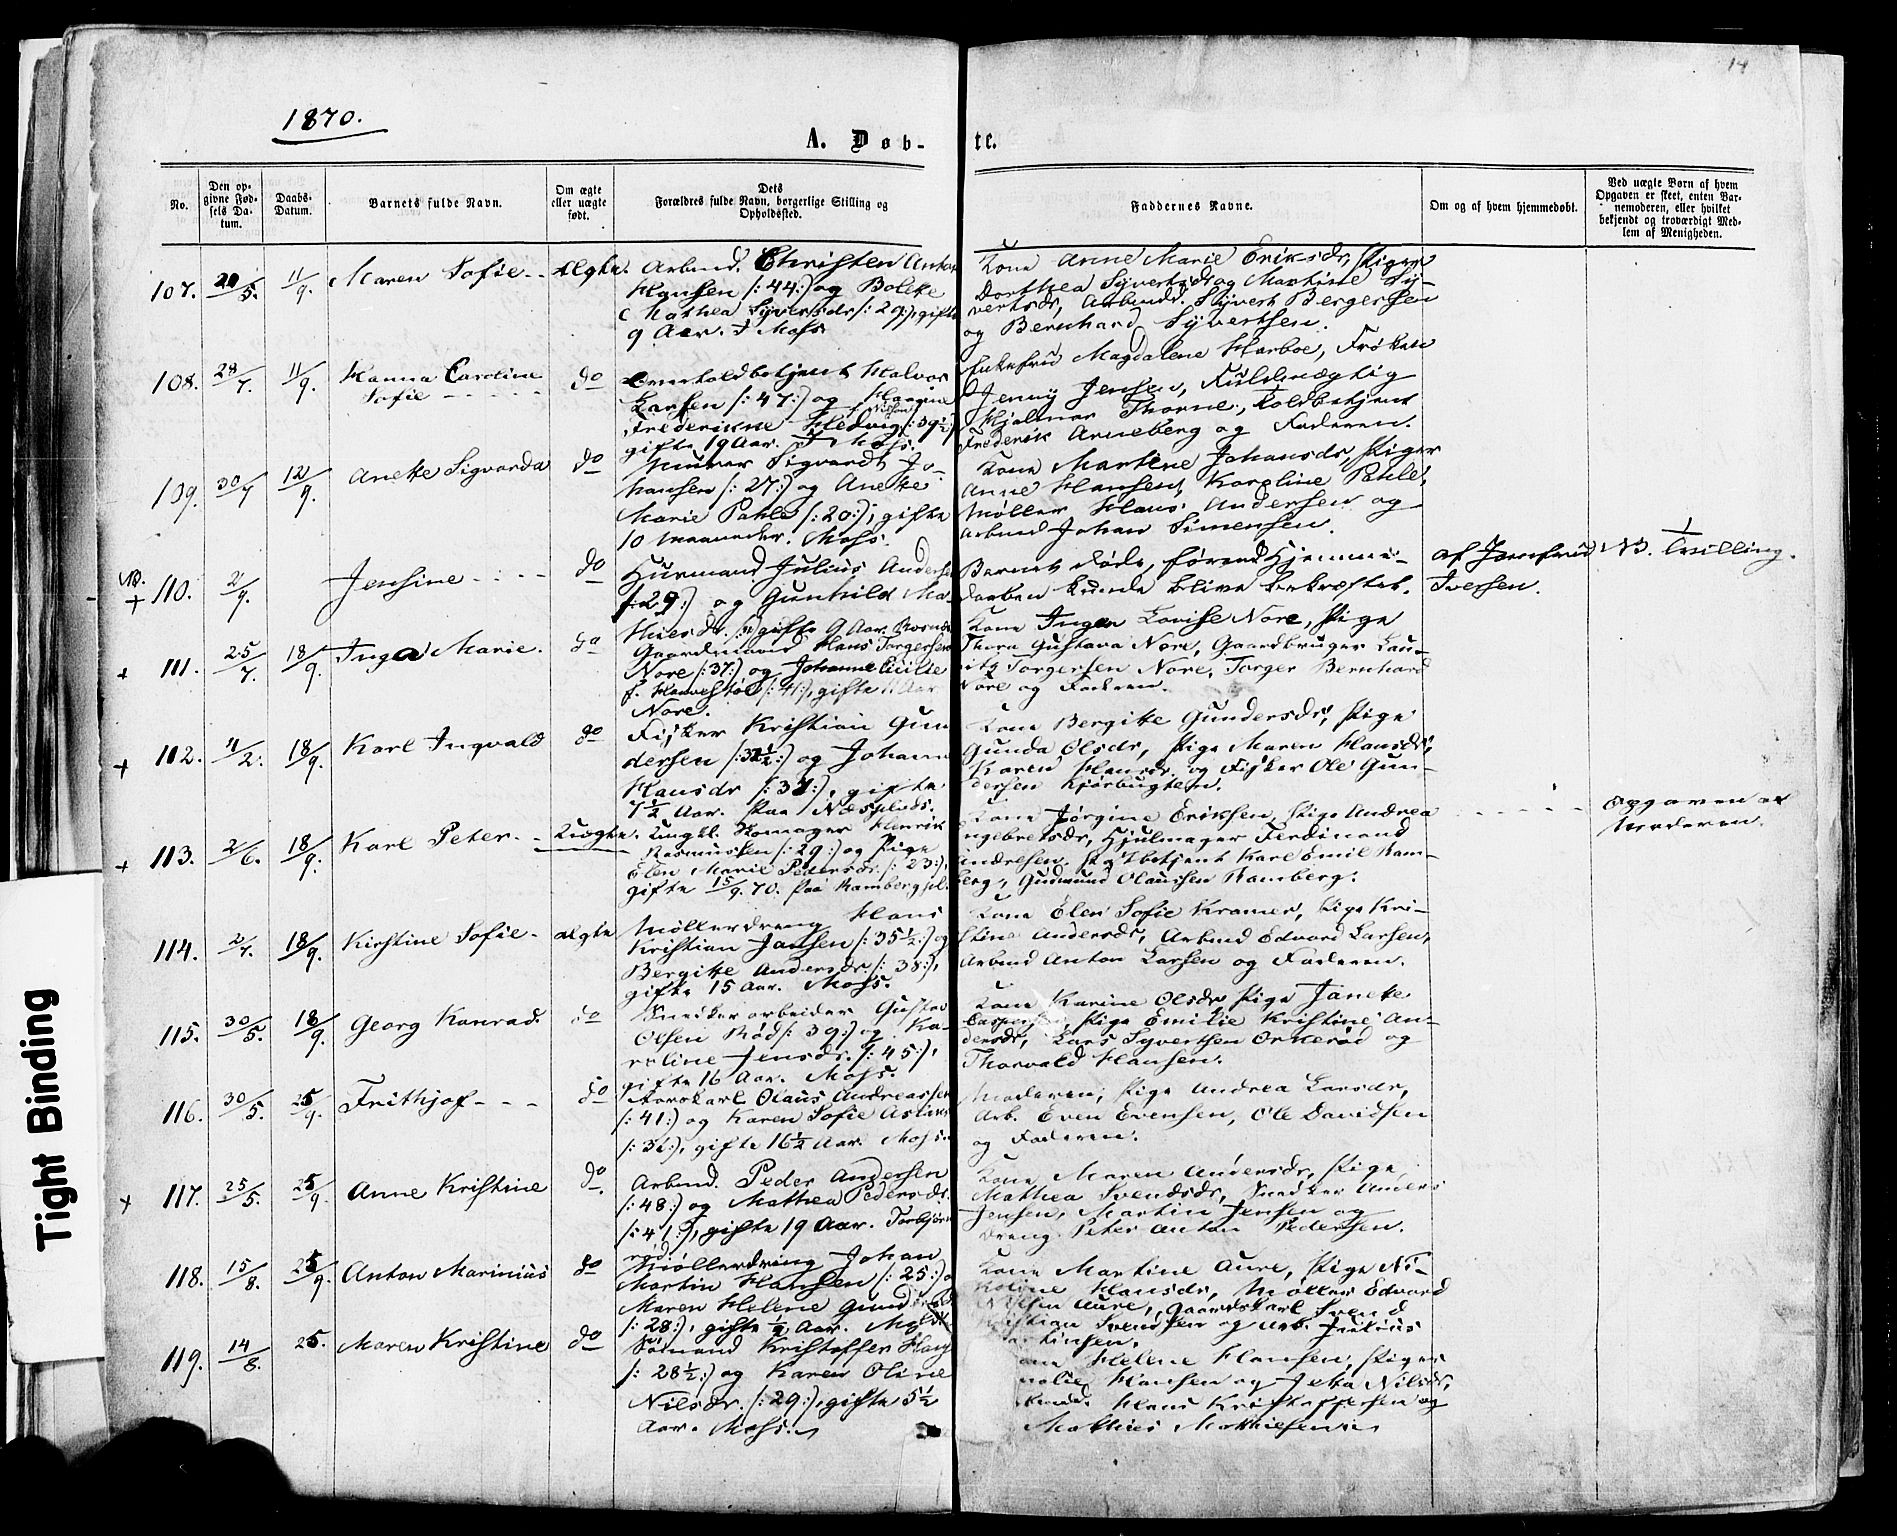 14
1870.
A. Døb-
te.
No.
Den op-
givne Fød-
sels Da-
tum.
Daabs-
Datum.
Barnets fulde Navn.
Om ægte
eller uægte
født.
Dets
Forældres fulde Navn, borgerlige Stilling og
Opholdssted.
Faddernes Navne.
Om og af hvem hjemmedøbt.
Ved uægte Børn af hvem
Opgaven er skeet, enten Bar-
nemoderen, eller hvilket
bekjendt og troværdigt Med-
lem af Menigheden.
107. 5. 11/9. Maren Sofie - - Ægte.
Arbmd. Christen Anton
Hansen /: 44:/ og Bolette
Mathea Syversdr /: 29:/, gifte
9 Aar. Moss
Kone Anne Marie Eriksdr, Piger
Dorthea Syvertsdr og Martine Sy-
vertsdr, Arbmdd. Syvert Bergersen
og Bernhard Syvertsen.
108. 28/7. 11/9. Hanna Caroline
Sofie - - - - - do
Overtoldbetjent Halvor
Larsen /: 47:/ og
Frederikke Hedvig Nilsen /: 39½:/
gifte 19 Aar. Moss.
Enkefru Magdalene Harboe, Frøken
Jenny Jensen, Fuldmægtig
Hjalmar Thorne, Toldbetjent
Frederik Arneberg og Faderen.
109. 30/7 12/9. Anette Sigvarda do
Murer Sigvardt Jo-
hansen /: 27:/ og Anette
Marie Pahle /: 20:/, gifte
10 Maaneder. Moss.
Kone Martine Johansdr, Piger
Anne Hansen, Karoline Pahle,
Møller Hans Andersen og
Arbmd Johan Simensen.
NB.
+ 110. 2/9. Jensine - - - - do
Huusmand Julius Anders
/: 29:/ og Gunhild Ma-
thiesdr. gifte 9 Aar.
Barnet døde, førend Hjemme-
daaben kunde blive bekræftet.
af Jomfrue
Iversen.
NB. Tvilling.
+ 111. 25/7. 18/9. Inga Marie. do
Gaardmand Hans Torgersen
Nore /: 37:/ og Johanne
f. /: 41:/, gifte 11 Aar
Nore.
Kone Inger Lovise Nore, Pige
Thora Gustava Nore, Gaardbruger Lau-
ritz Torgersen Nore, Torger Bernhard
Nore og Faderen.
+ 112. 11/2. 18/9. Karl Ingvald do
Fisker Kristian Gun
dersen /: 32½:/ og Johanne
Hansdr /: 37:/, gifte
7½ Aar. paa Næsplads.
Kone Bergitte Gundersdr, Pige
Gunda Olsdr, Pige Maren Hansdr,
Karen Hansdr. og Fisker Ole Gun-
dersen Kjørbugten.
+ 113. 2/6. 18/9. Karl Peter. - Uægte.
Ungk. Skomager Henrik
Rasmussen /: 29:/ og Pige
Elen Marie Pedersdr /: 23:/,
gifte 15/9. 70. paa Ramberg pl.
Kone Jørgine Eriksen, Pige Andrea
Engebretsdr, Hjulmager Ferdinand
Andresen, Karl Emil Ram-
berg, Gudmund Olaussen Ramberg.
Opgaven af
Moderen.
114. 2/7. 18/9. Kirstine Sofie - Ægte
Møllerdreng Hans
Kristian Jansen /: 35½:/ og
Bergitte Andersdr. /: 38:/,
gifte 15 Aar. Moss.
Kone Elen Sofie Kramer, Pige Kri-
stine Andersdr, Arbmd Edvard Larsen,
Arbmd Anton Larsen og Faderen.
115. 30/5. 18/9. Georg Konrad. do
Snedkerarbeider Gustav
Olsen Rød /: 39:/ og Ka-
roline Jensdr. /: 45:/,
gifte 16 Aar. Moss.
Kone Karine Olsdr, Pige Janette
Caspersen, Pige Emilie Kristine An-
dersdr, Lars Syvertsen Orkerød og
Thorvald Hansen.
116. 30/5. 25/9. Frithjof - - - do
Olaus Andreassen
/: 41:/ og Karen Sofie
/: 31:/, gifte 16½ Aar. Moss.
Moderen, Pige Andrea Larsdr,
Arb. Even Evensen, Ole Davidsen
og Faderen.
+ 117. 25/5. 25/9. Anne Kristine do.
Arbmd. Peder Andersen
/: 48:/ og Mathea Pedersdr.
/: 41:/, gifte 19 Aar. Torbjørns
rød.
Kone Maren Andersdr, Pige
Mathea Svendsdr, Snedker Anders
Jensen, Martin Jensen og
Dreng Peter Anton Pedersen.
118. 15/8. 25/9. Anton Marinius do
Møllerdreng Johan
Martin Hansen /: 25:/ og
Maren Helene
/: 28:/, gifte ½ Aar. Moss.
Kone Martine Aure, Pige Ni-
koline Hansdr, Møller Edvard
Nilsen Aure, Gaardskarl Svend
Kristian Svendsen og Arb. Julius
Martinsen.
119. 14/8. 25. Maren Kristine do
Sømand Kristoffer
/: 28½:/ og Karen Oline
Nilsdr. /: 29:/, gifte 5½
Aar. Moss.
Kone Helene Hansen, Piger
Hansen og Nilsdr,
Hans Kristoffersen og
Mathias Mathiesen.
Tight Binding